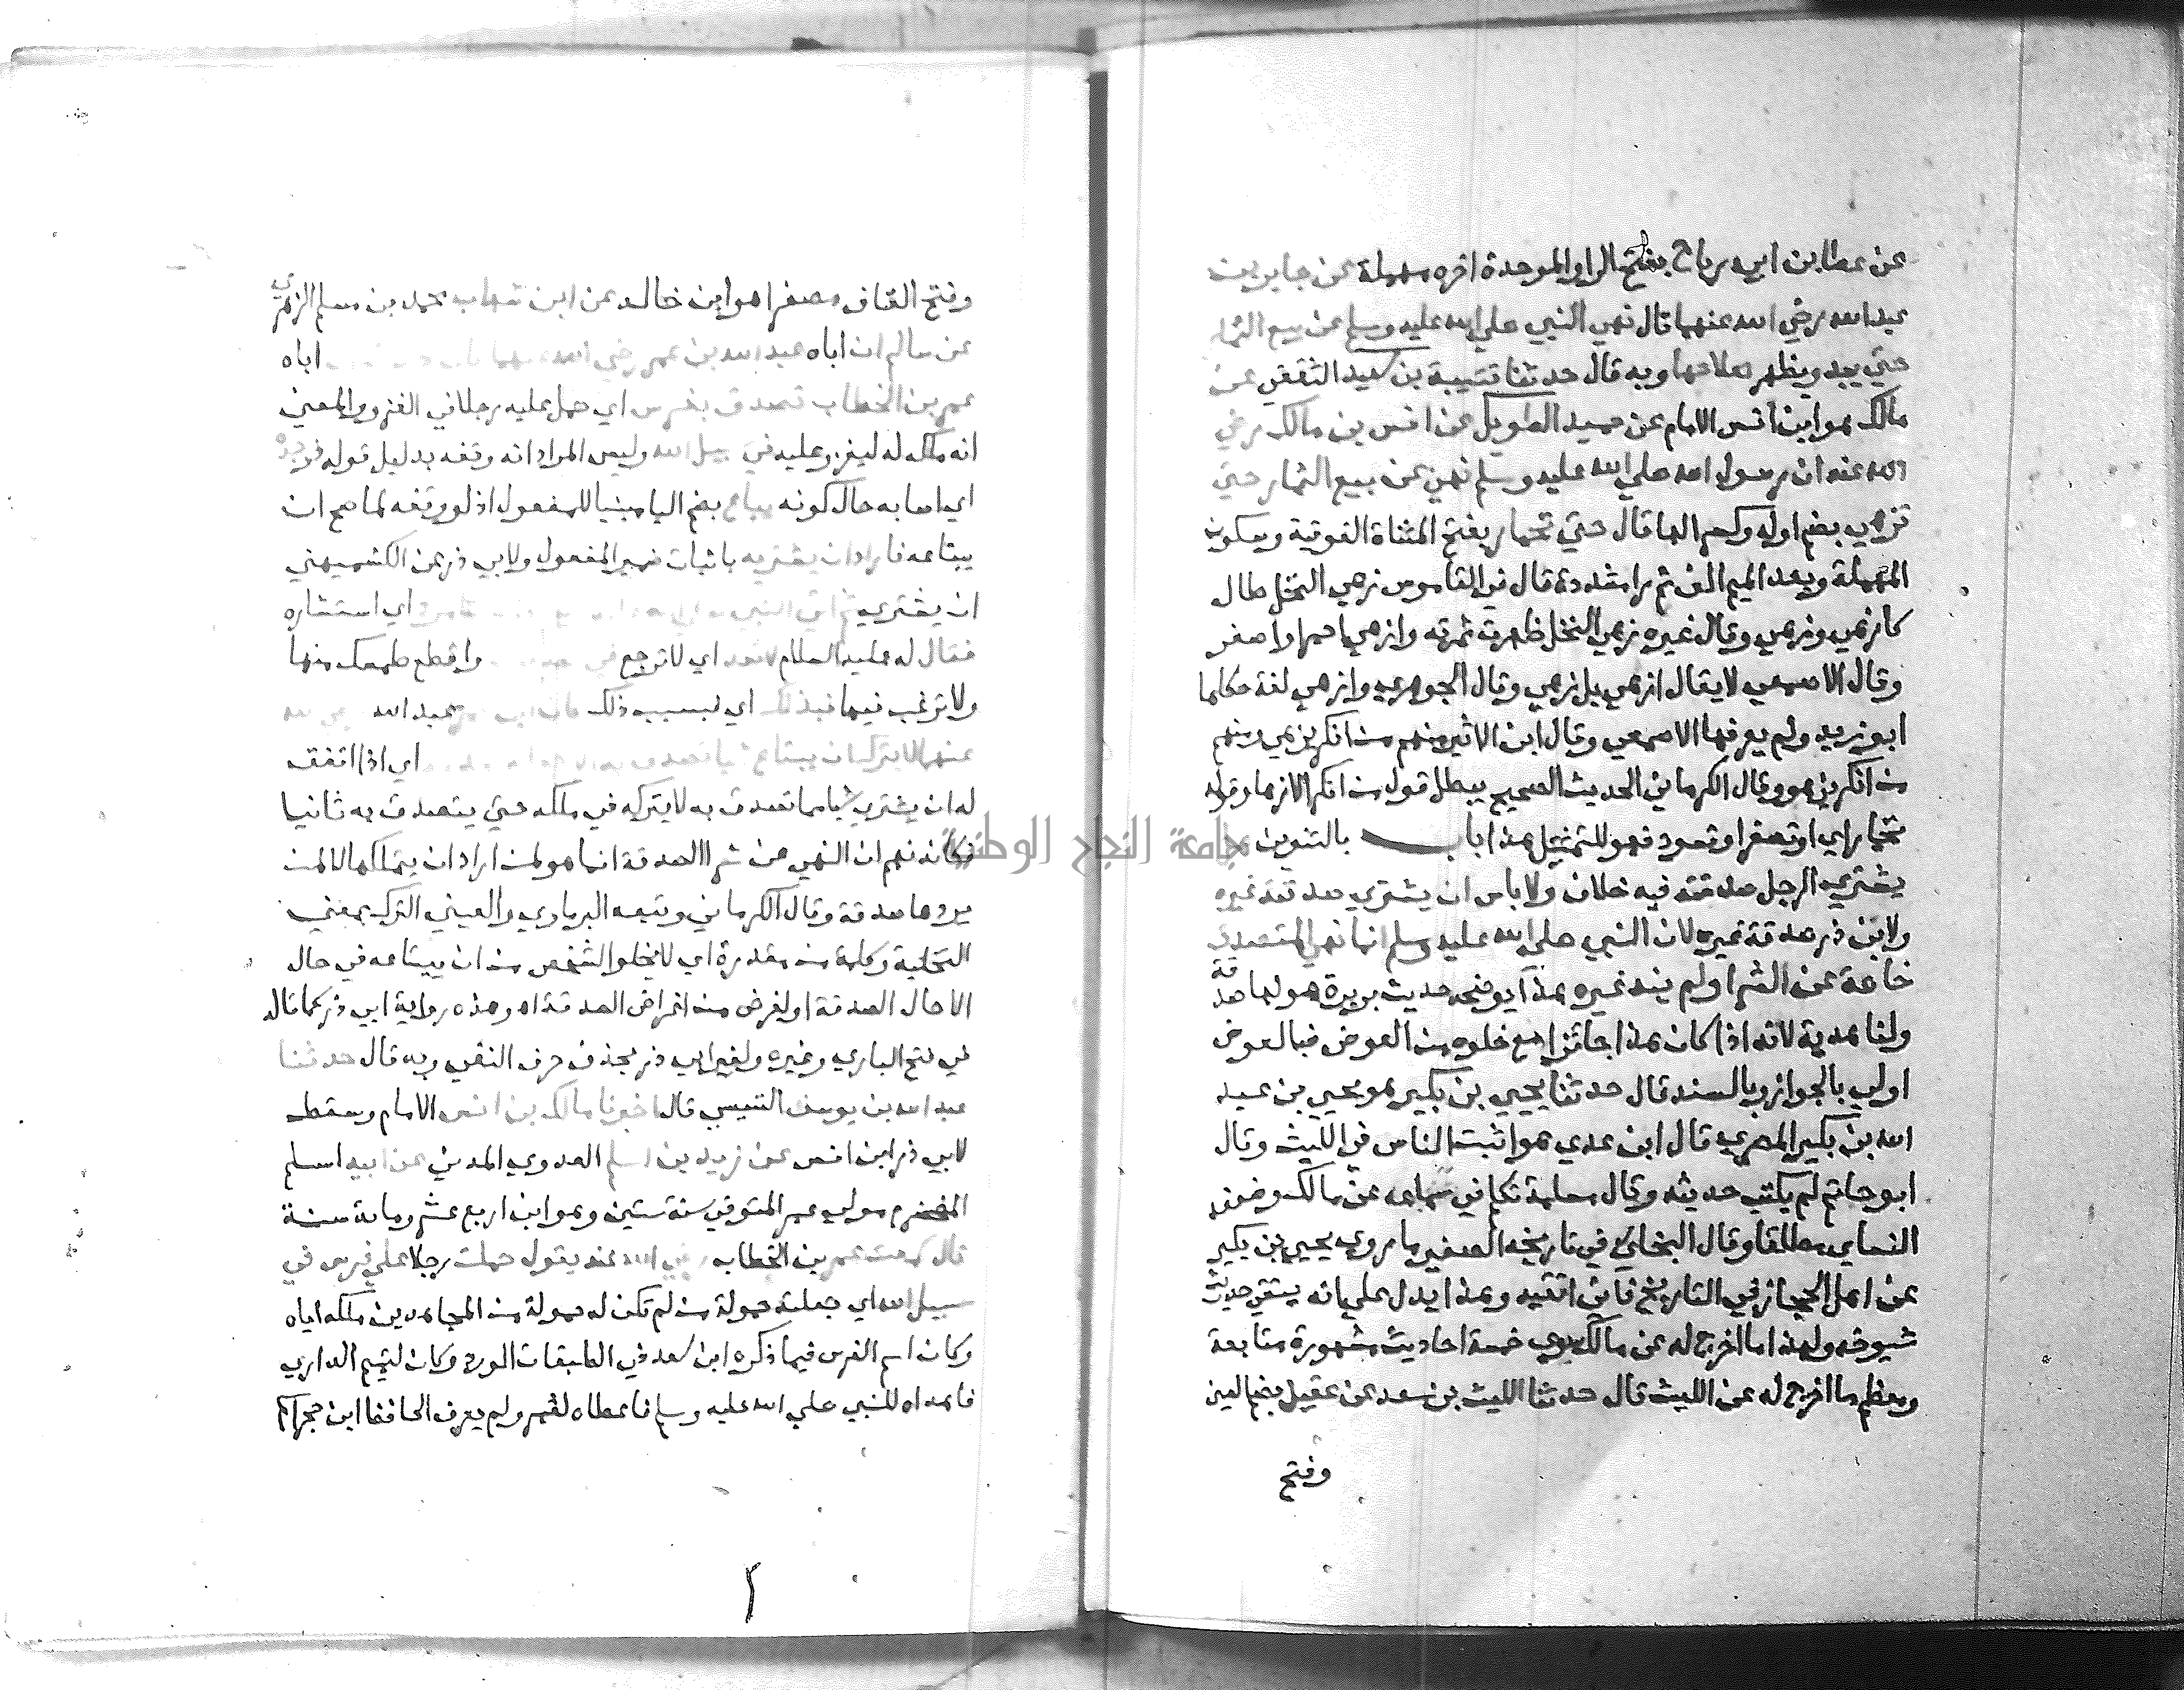 عن عطا بن ابي رباح بفتح الرا والموحدة اخره مهملة عن جابر بن
عبد الله رضي الله عنهما قال نهي النبي صلي الله عليه وسلم عن بيع الثمار
حتي يبدو يظهر صلاحها وبه قال حدثنا قتيبة بن سعيد الثقفي عن
مالك هو ابن انس الامام عن حميد الطويل عن انس بن مالك رضي
الله عنه ان رسول الله صلي الله عليه وسلم نهي عن بيع الثمار حتي
تزهي بضم اوله وكسر الها قال حتي تحمار بفتح المثناة الفوقية وسكون
المهملة وبعد الميم الف ثم را مشددة قال في القاموس زهي النخل طال
كازهي وزهي وقال غيره زهي النخل ظهرت ثمرته وازهي احمر او اصفر
وقال الاصمعي لا يقال ازهي بل زهي وقال الجوهري وازهي لغة حكاها
ابو زيد ولم يعرفها الاصمعي وقال ابن الاثير منهم من انكر يزهي ومنهم
من انكر يزهو وقال الكرماني الحديث الصحيح يبطل قول من انكر الازها وقوله
تحمار اي او تصفر او تسود فهو للتمثيل هذا باب بالتنوين
يشتري الرجل صدقته فيه خلاف ولا باس ان يشتري صدقة غيره
ولابي ذر صدقة غيره لان النبي صلي الله عليه وسلم انما نهي المتصدق
خاصة عن الشرا ولم ينه غيره هذا يوضحه حديث بريرة هو لها صدقة
ولنا هدية لانه اذا كان هذا جائزا مع خلوه من العوض فبالعوض
اولي بالجواز وبالسند قال حدثنا يحيي بن بكير هو يحيي بن عبد
الله بن بكير المصري قال ابن عدي هو اثبت الناس في الليث وقال
ابو حاتم لم يكتب حديثه وقال مسلمة تكلم في سماعه عن مالك وضعفه
النساي مطلقا وقال البخاري في تاريخه الصغير ما روي يحيي بن بكير
عن اهل الحجاز في التاريخ فاني اتقيه وهذا يدل علي انه ينتقي حديث
شيوخه ولهذا ما اخرج له عن مالك سوي خمسة احاديث مشهورة متابعة
ومعظم ما اخرج له عن الليث قال حدثنا الليث بن سعد عن عقيل بضم العين
وفتح
وفتح القاف مصغرا هو ابن خالد عن ابن شهاب محمد بن مسلم الزهري
عن سالم ان اباه عبد الله بن عمر رضي الله عنهما اباه
عمر بن الخطاب تصدق بفرس اي حمل عليه رجلا في الغزو والمعني
انه ملكه له ليغزو عليه في سبيل الله وليس المراد انه وقفه بدليل قوله فوجده
اي اصابه حال كونه يباع بضم اليا مبنيا للمفعول اذ لو وقفه لما صح ان
يبتاعه فاراد ان يشتريه باثبات ضمير المفعول ولابي ذر عن الكشميهني
ان يشتري ثم اتي النبي اي استشاره
فقال له عليه السلام لا تعد اي لا ترجع في واقطع طمعك منها
ولا ترغب فيها فبذلك اي بسبب ذلك كان ابن عبد الله
عنهما لا يترك ان يبتاع شيا تصدق به اي اذا اتفق
له ان يشتري شيا مما تصدق به لا يتركه في ملكه حتي يتصدق به ثانيا
فكانه فهم ان النهي عن شرا الصدقة انما هو لمن اراد ان يتملكها لا لمن
يردها صدقة وقال الكرماني وتبعه البرماوي والعيني الترك بمعني
التخلية وكلمة من مقدرة اي لا يخلو الشخص من ان يبتاعه في حال
الا حال الصدقة او لغرض من اغراض الصدقة اه وهذه رواية ابي ذر كما قاله
في فتح الباري وغيره ولغير ابي ذر بحذف حرف النفي وبه قال حدثنا
عبد الله بن يوسف التنيسي قال اخبرنا مالك بن انس الامام وسقط
لابي ذر ابن انس عن زيد بن اسلم العدوي المدني عن ابيه اسلم
المخضرم مولي عمر المتوفي سنة ستين وهو ابن اربع عشر وماية سنة
قال سمعت عمر بن الخطاب رضي الله عنه يقول حملت رجلا علي فرس في
سبيل الله اي جعلته حمولة من لم تكن له حمولة من المجاهدين ملكه اياه
وكان اسم الفرس فيما ذكره ابن سعد في الطبقات الورد وكان لتميم الداري
فاهداه للنبي صلي الله عليه وسلم فاعطاه لعمر ولم يعرف الحافظ ابن حجر اسم
جامعة النجاح الوطنية